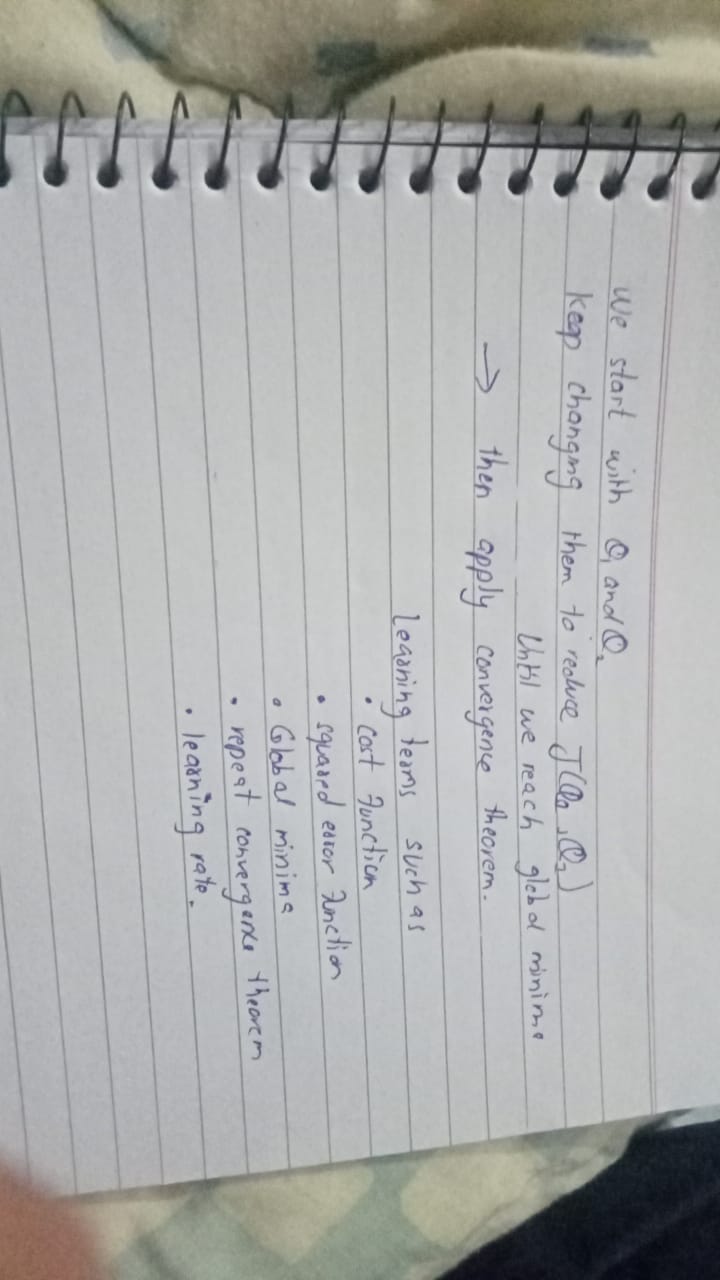 We start with Θ₁ and Θ₂
keep changing them to reduce J(Θ₁, Θ₂)
Until we reach global minima
→ then apply convergence theorem.
Learning terms such as
• cost function
• squared error function
• Global minima
• repeat convergence theorem
• learning rate.